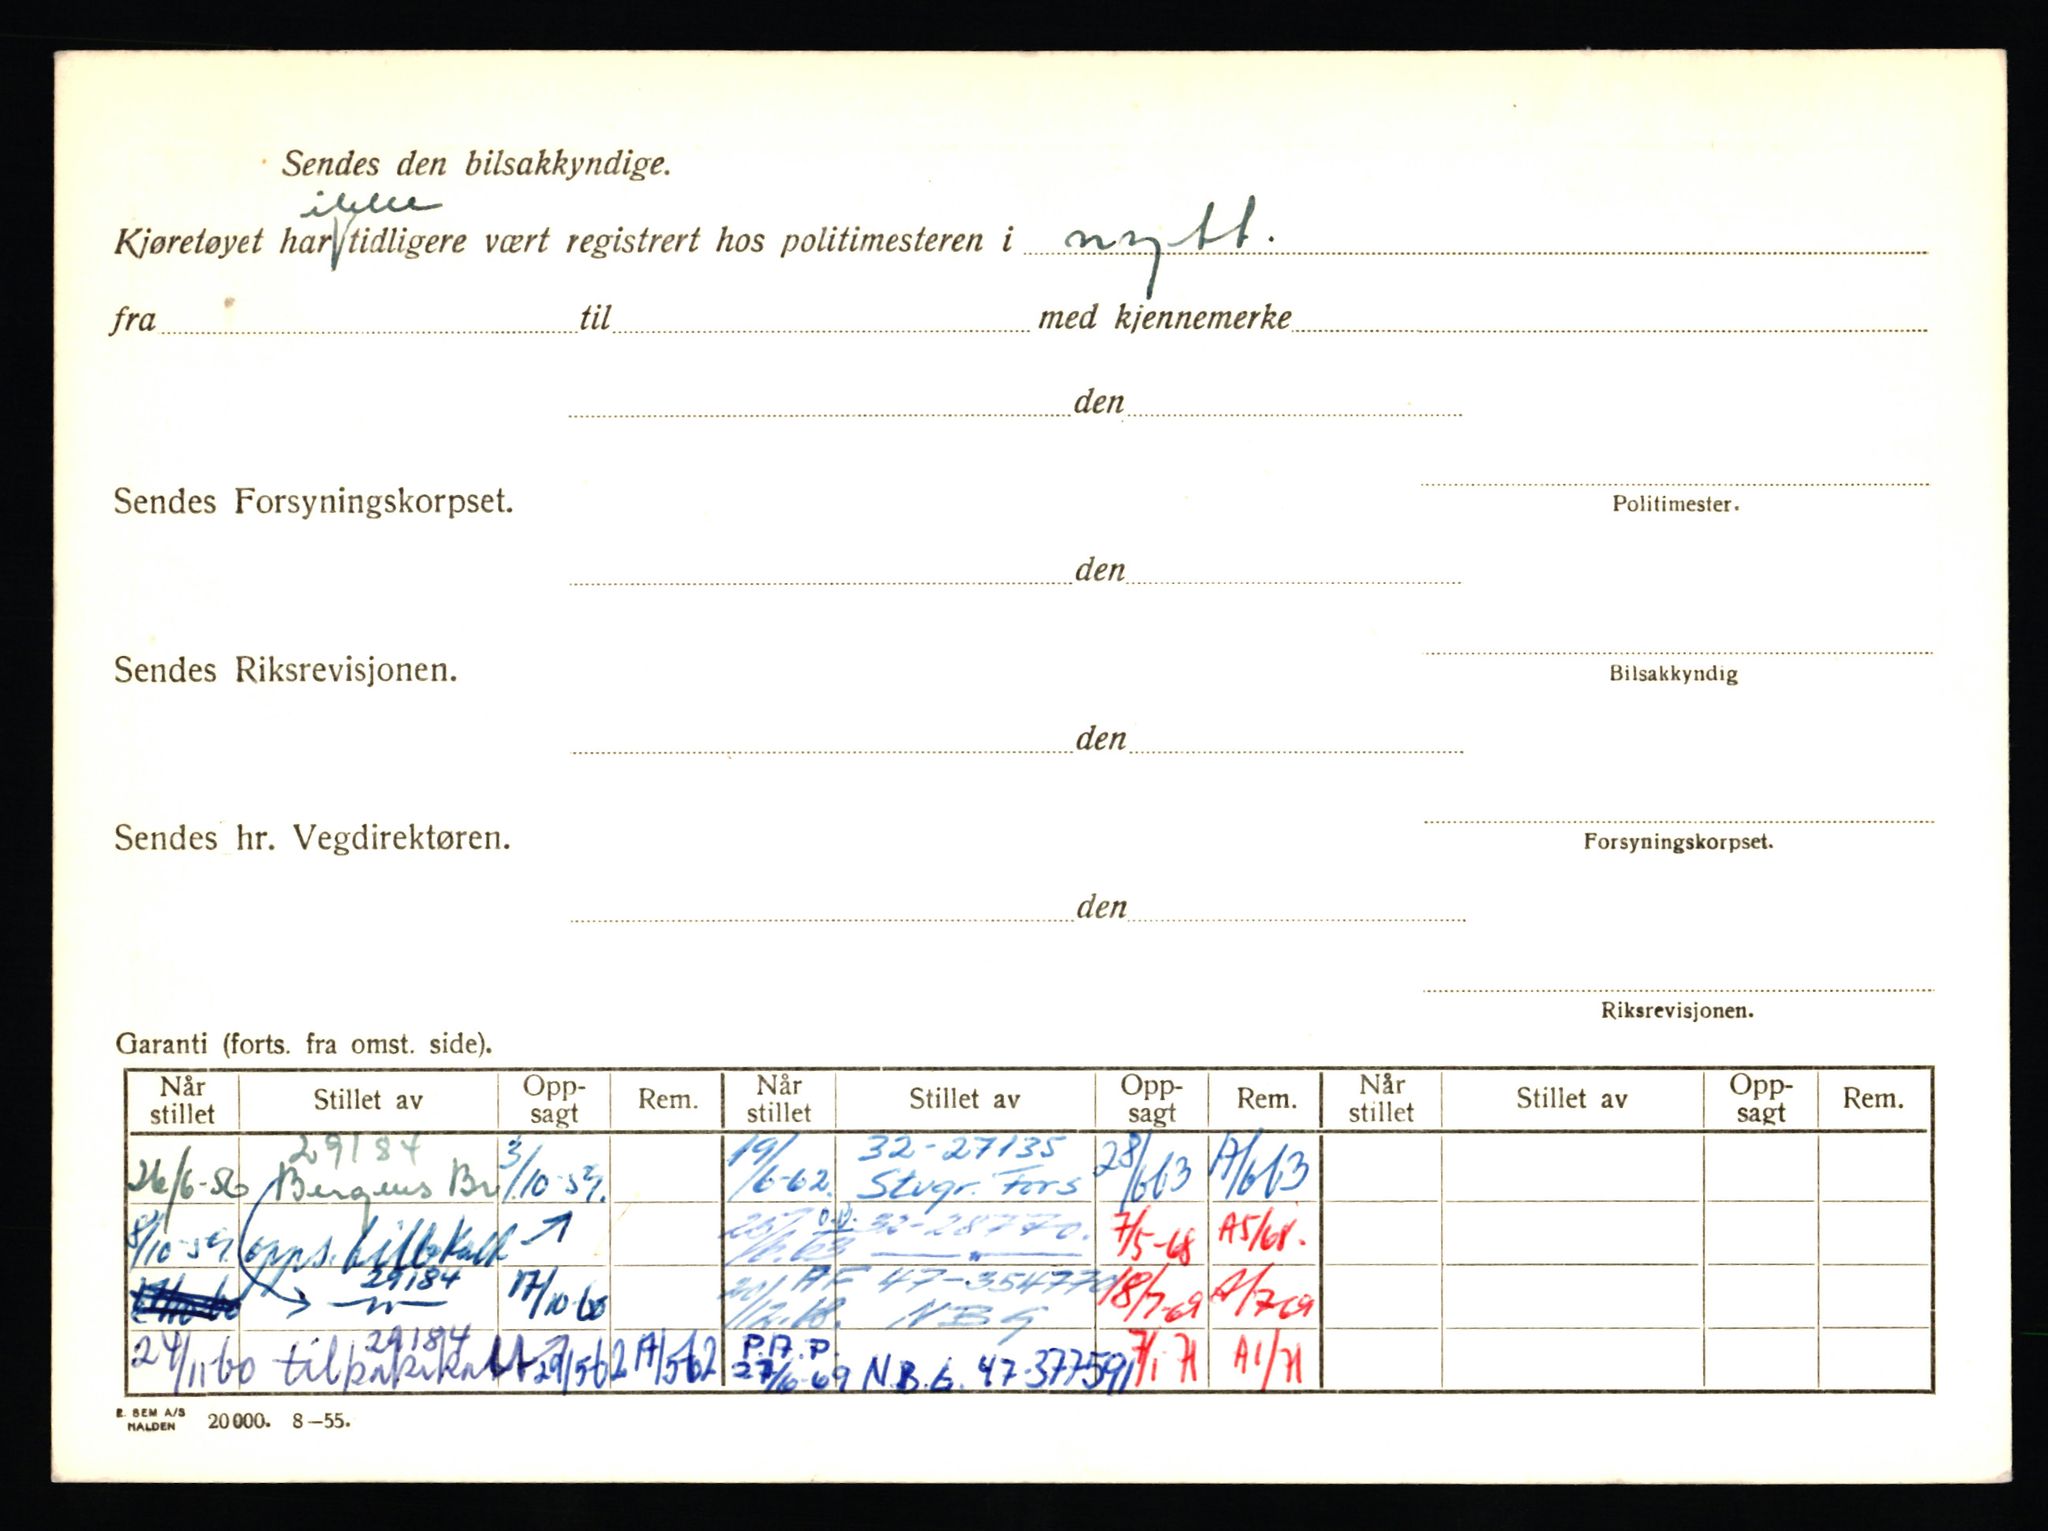 Sendes den bilsakkyndige.
ikke
Kjøretøyet har √ tidligere vært registrert hos politimesteren i nytt.
fra til med kjennemerke
den
Sendes Forsyningskorpset.
Politimester.
den
Sendes Riksrevisjonen.
Bilsakkyndig
den
Sendes hr. Vegdirektøren.
Forsyningskorpset.
den
Riksrevisjonen.
Garanti (forts. fra omst. side).
Når stillet Stillet av Opp-sagt Rem. Når stillet Stillet av Opp-sagt Rem. Når stillet Stillet av Opp-sagt Rem.
29184 32-27135
26/6-56 Bergens Br 3/10-59. 19/6-62. Stvgr. Fors 28/663 A/663
8/10-59. opps. tilbakek 32-28770. 7/5-68 A5/68.
29184 17/10-60 AF 47-35477 NBG 18/7-69 A/769
29184 P.A.P.
24/11-60 tilbakekalt 29/562 A/562 27/6-69 N.B.G. 47-377591 7/1 71 A1/71
E. SEM A/S
HALDEN 20000. 8-55.